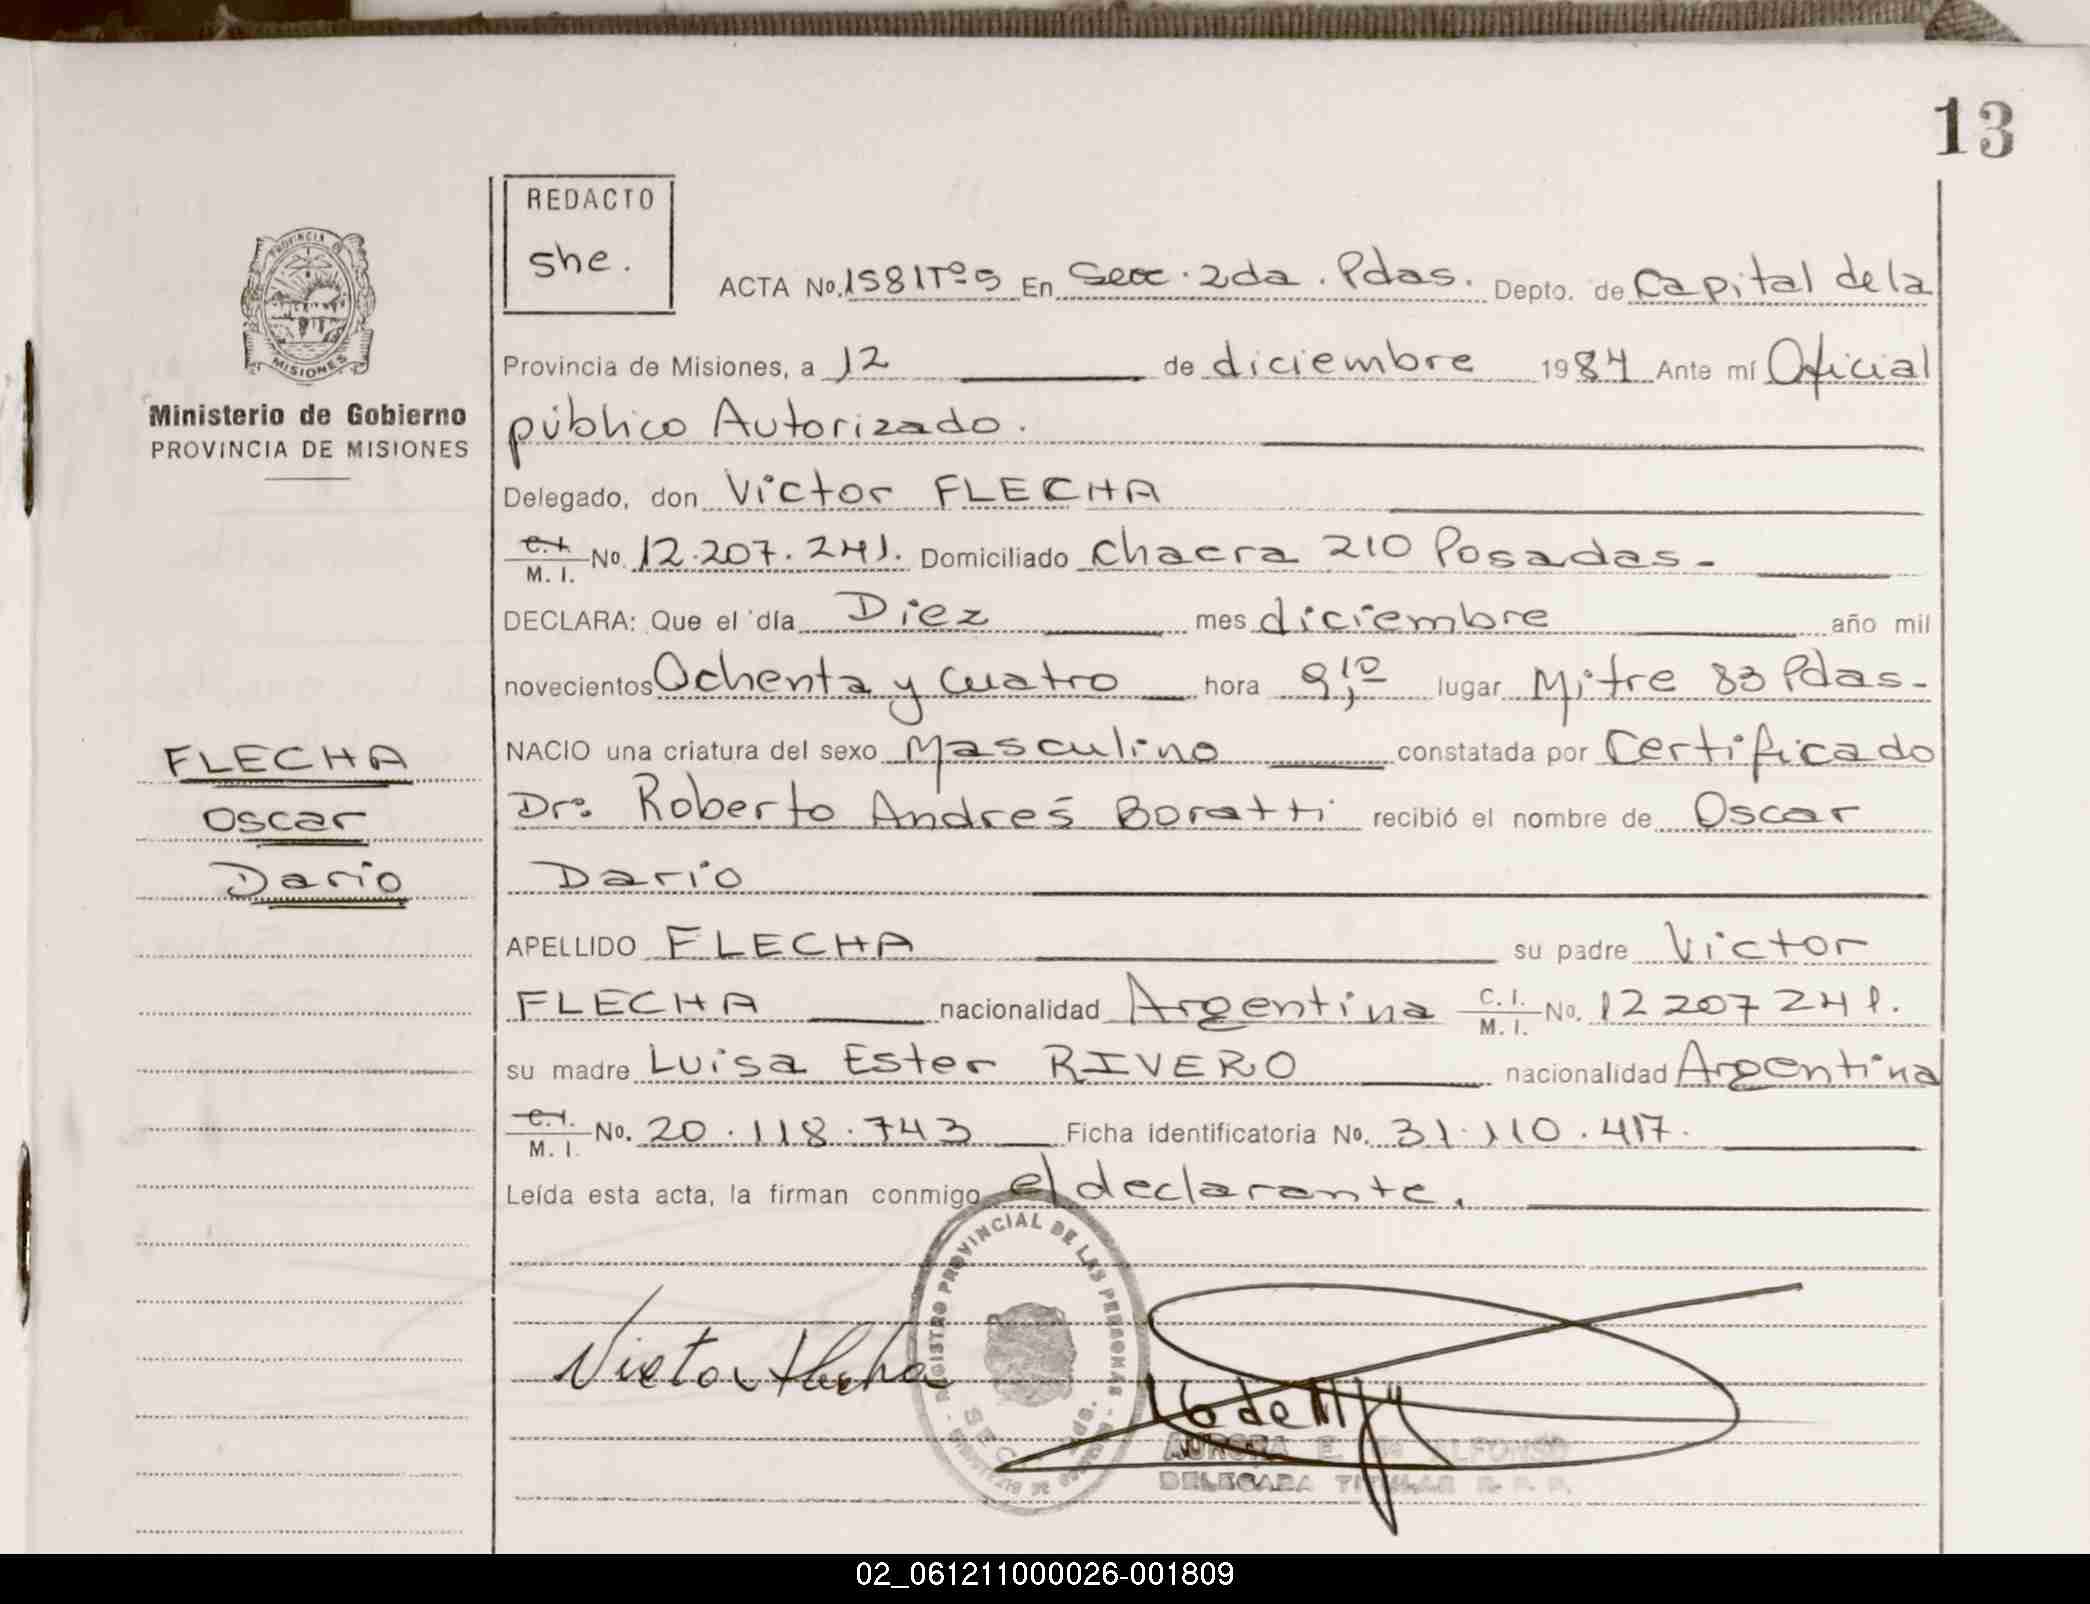 13
REDACTO
she.
ACTA No. 1581Tº5 En Secc. 2da. Pdas. Depto. de Capital de la
PROVINCIA DE
MISIONES
Ministerio de Gobierno
PROVINCIA DE MISIONES
Provincia de Misiones, a 12 de diciembre 1984 Ante mí Oficial
público Autorizado.
Delegado, don Victor FLECHA
C.I. M. I. No. 12.207.241. Domiciliado Chacra 210 Posadas.-
DECLARA: Que el día Diez mes diciembre año mil
novecientos Ochenta y Cuatro hora 9,10 lugar Mitre 83 Pdas.-
FLECHA
Oscar
Dario
NACIO una criatura del sexo Masculino constatada por Certificado
Dr: Roberto Andres Boratti recibió el nombre de Oscar
Dario
APELLIDO FLECHA su padre Victor
FLECHA nacionalidad Argentina C. I. M. I. No. 12 207 241.
su madre Luisa Ester RIVERO nacionalidad Argentina
C.I. M. I. No. 20.118.743 Ficha identificatoria No. 31.110.417.
Leída esta acta, la firman conmigo el declarante.
REGISTRO PROVINCIAL DE LAS PERSONAS
Victor Flecha
AURORA E. ALFONSO
DELEGADA TITULAR R. P. P.
02_061211000026-001809